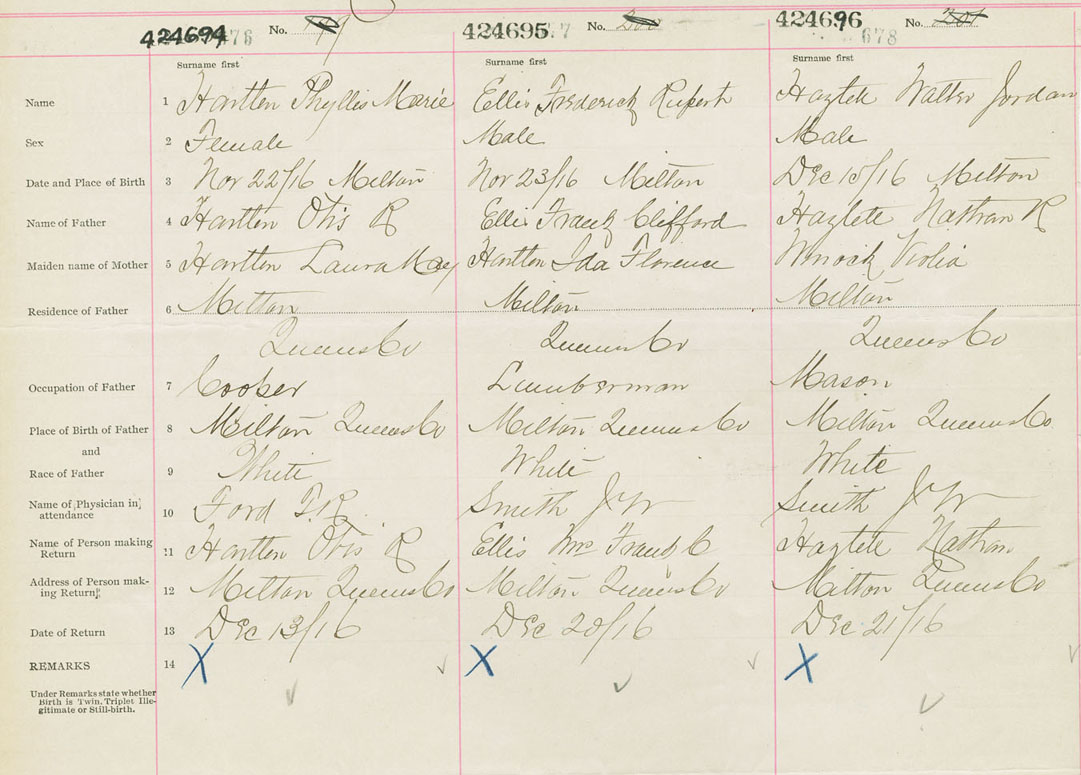 424694 No.
424695 No.
424696 678 No. 201
Surname first Surname first Surname first
Name 1 Hartten Phyllis Marie Ellis Frederick Rupert Hartek Walter Jordan
Sex 2 Female Male Male
Date and Place of Birth 3 Nov 22/16 Milton Nov 23/16 Milton Dec 15/16 Milton
Name of Father 4 Hartten Otis R Ellis Frank Clifford Nathan R
Maiden name of Mother 5 Hartten Laura May Hartten Ida Florence Violia
Residence of Father 6 Milton Milton Milton
Queens Co Queens Co Queens Co
Occupation of Father 7 Cooper Lumberman Mason
Place of Birth of Father 8 Milton Queens Co Milton Queens Co Milton Queens Co
and
Race of Father 9 White White White
Name of Physician in attendance 10 Ford T.R. Smith J W Smith J W
Name of Person making Return 11 Hartten Otis R Ellis Mrs Frank C Nathan
Address of Person making Return 12 Milton Queens Co Milton Queens Co Milton Queens Co
Date of Return 13 Dec 13/16 Dec 20/16 Dec 21/16
REMARKS 14 X X X
Under Remarks state whether
Birth is Twin, Triplet Ille-
gitimate or Still-birth.